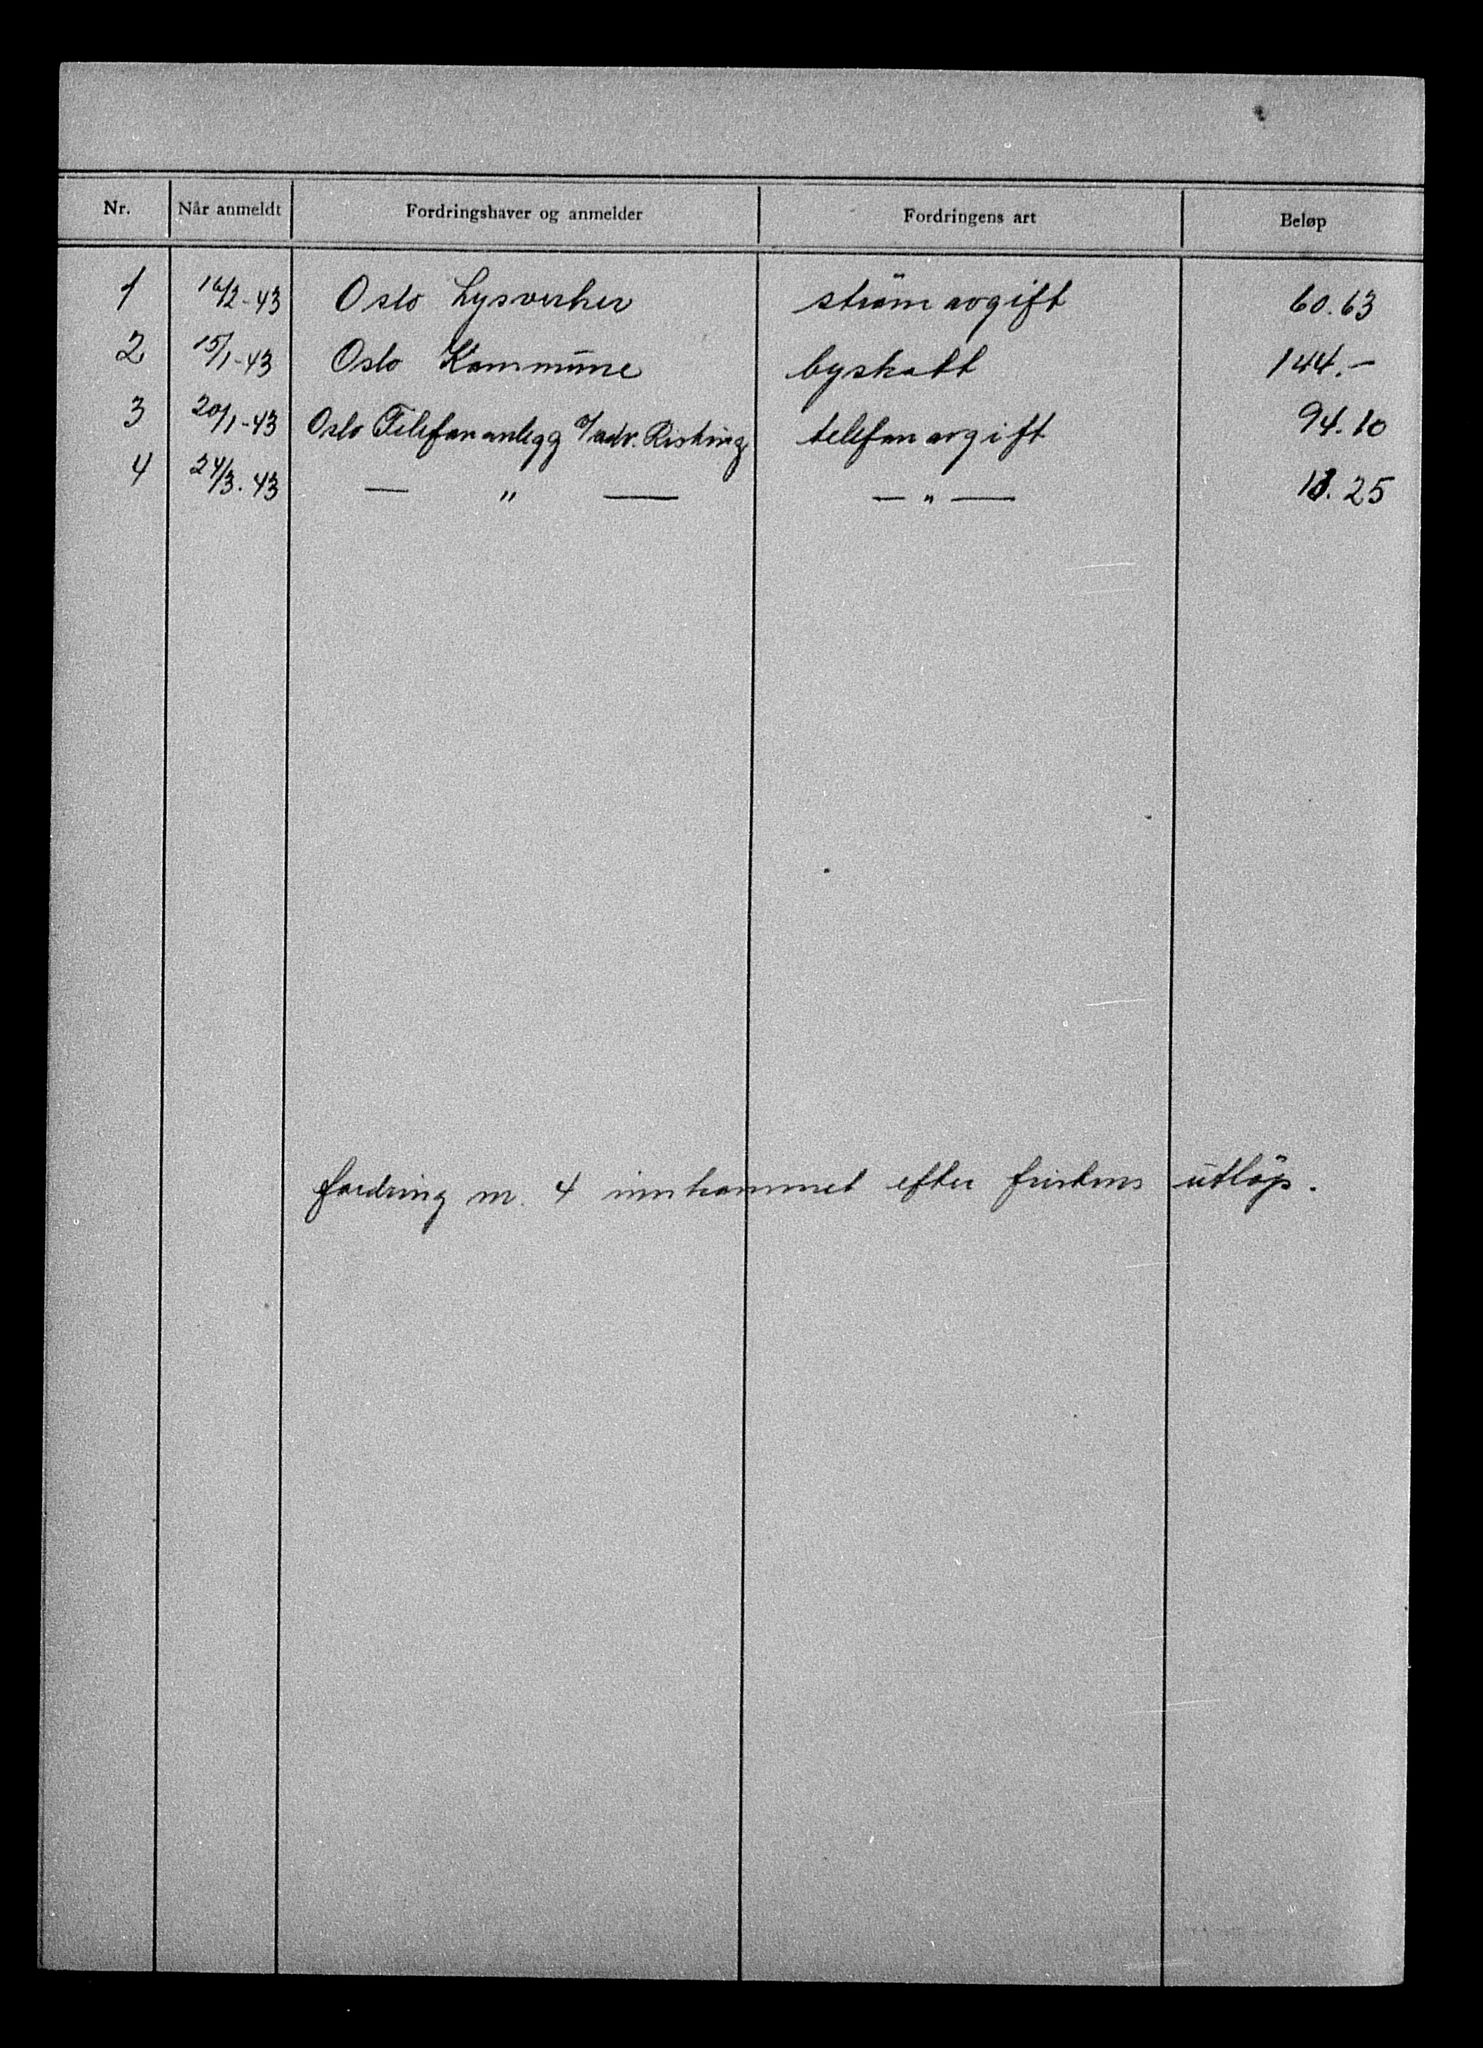 Nr. Når anmeldt Fordringshaver og anmelder Fordringens art Beløp
1 16/2-43 Oslo Lysverker strömavgift 60.63
2 15/1-43 Oslo Kommune byskatt 144.-
3 20/1-43 Oslo Telefonanlegg v/adv. Risting telefonavgift 94.10
4 24/3.43 — " — — " — .25
fordring nr. 4 innkommet efter fristens utløp.